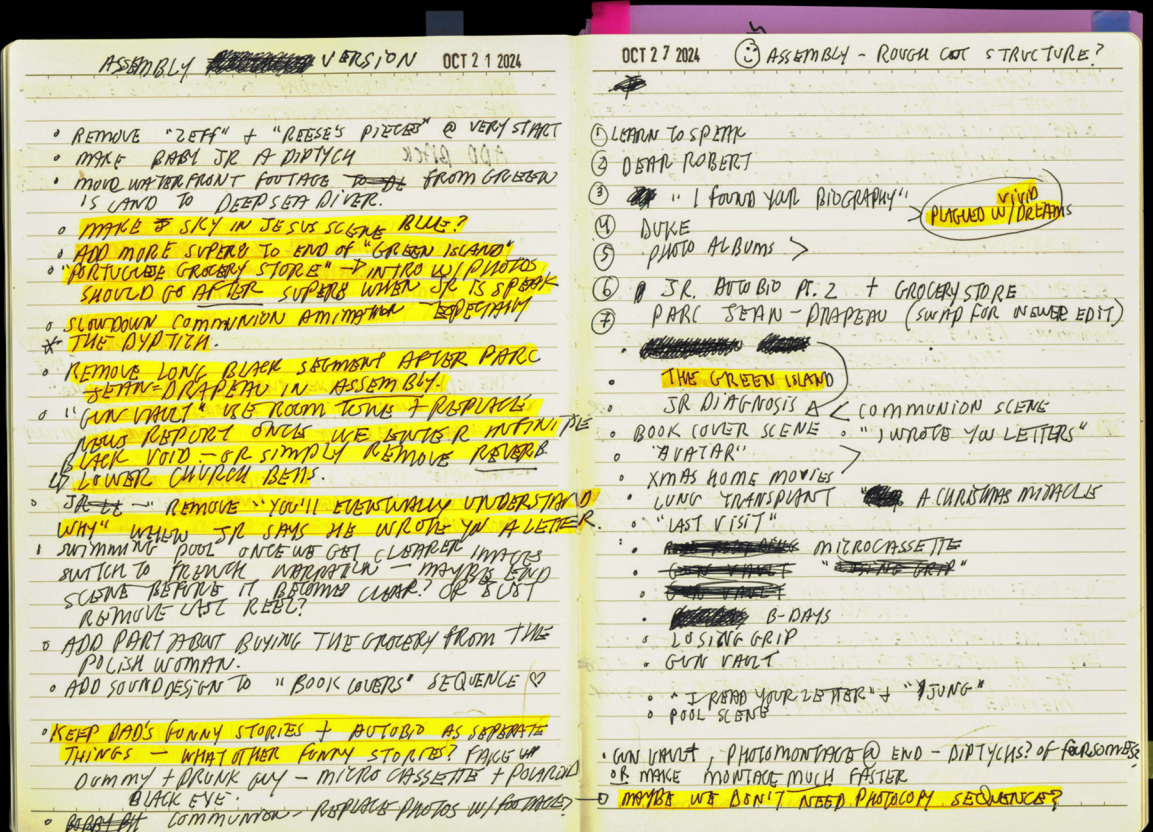 ASSEMBLY VERSION OCT 21 2024
• REMOVE "ZEFF" + "REESE'S PIECES" @ VERY START
• MAKE BABY JR A DIPTYCH
• MOVE WATERFRONT FOOTAGE FROM GREEEN
ISLAND TO DEEPSEA DIVER.
• MAKE SKY IN JESUS SCENE BLUE?
• ADD MORE SUPER8 TO END OF "GREEN ISLAND"
• "PORTUGUESE GROCERY STORE" → INTRO W/ PHOTOS
SHOULD GO AFTER SUPER8 WHEN JR IS SPEAK
• SLOWDOWN COMMUNION ANIMATION ESPECIALLY
* THE DYPTICH.
• REMOVE LONG BLACK SEGMENT AFTER PARC
JEAN-DRAPEAU IN ASSEMBLY.
• "GUN VAULT" USE ROOM TONE + REPLACE
NEWS REPORT ONCE WE ENTER INFINITE
BLACK VOID - OR SIMPLY REMOVE REVERB
↳ LOWER CHURCH BELLS.
• JR - REMOVE "YOU'LL EVENTUALLY UNDERSTAND
WHY" WHEN JR SAYS HE WROTE YOU A LETTER.
• SWIMMING POOL ONCE WE GET CLEARER IMAGES
SWITCH TO FRENCH NARRATION - MAYBE END
SCENE BEFORE IT BECOMES CLEAR? OR JUST
REMOVE LAST REEL?
• ADD PART ABOUT BUYING THE GROCERY FROM THE
POLISH WOMAN.
• ADD SOUND DESIGN TO "BOOK COVERS" SEQUENCE ♡
• KEEP DAD'S FUNNY STORIES + AUTOBIO AS SEPERATE
THINGS - WHAT OTHER FUNNY STORIES? FAKE
DUMMY + DRUNK GUY - MICROCASSETTE + POLAROID
BLACK EYE.
• COMMUNION - REPLACE PHOTOS W/ FOOTAGE?
OCT 27 2024 ☺ ASSEMBLY - ROUGH CUT STRUCTURE?
① LEARN TO SPEAK
② DEAR ROBERT
③ "I FOUND YOUR BIOGRAPHY"
> PLAGUED W/ VIVID DREAMS
④ DUKE
⑤ PHOTO ALBUMS >
⑥ JR. AUTOBIO PT. 2 + GROCERY STORE
⑦ PARC JEAN-DRAPEAU (SWAP FOR NEWER EDIT)
• THE GREEN ISLAND
• JR DIAGNOSIS < COMMUNION SCENE
• BOOK COVER SCENE • "I WROTE YOU LETTERS"
• "AVATAR"
• XMAS HOME MOVIES
• LUNG TRANSPLANT A CHRISTMAS MIRACLE
• "LAST VISIT"
• MICROCASSETTE
• B-DAYS
• LOSING GRIP
• GUN VAULT
• "I READ YOUR LETTER" + "JUNG"
• POOL SCENE
• GUN VAULT, PHOTOMONTAGE @ END - DIPTYCHS? OF FOURSOMES?
OR MAKE MONTAGE MUCH FASTER
• MAYBE WE DON'T NEED PHOTOCOPY SEQUENCE?